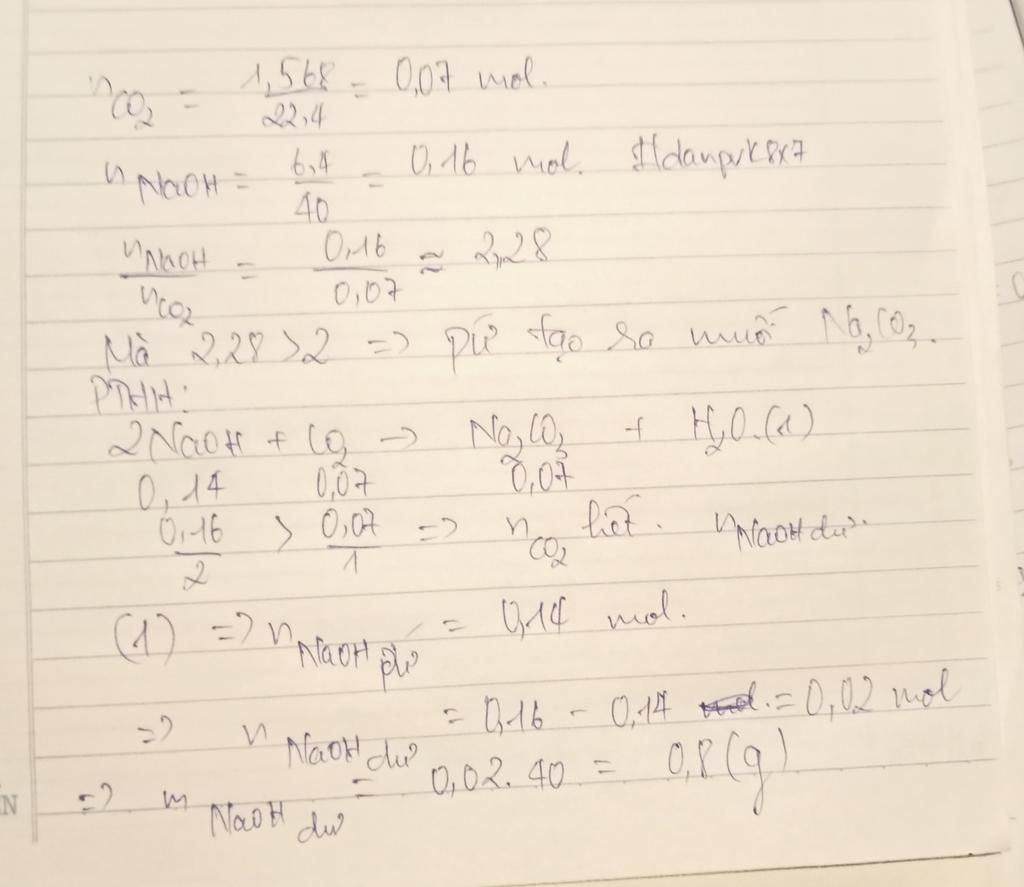 nCO2 = 1,568/22,4 = 0,07 mol.
nNaOH = 6,4/40 = 0,16 mol.
nNaOH/nCO2 = 0,16/0,07 ≈ 2,28
Mà 2,28 > 2 => pứ tạo ra muối Na2CO3.
PTHH:
2NaOH + CO2 -> Na2CO3 + H2O.(1)
0,14 0,07 0,07
0,16/2 > 0,07/1 => nCO2 hết. nNaOH dư.
(1) => nNaOH pứ = 0,14 mol.
=> nNaOH dư = 0,16 - 0,14 = 0,02 mol
=> mNaOH dư = 0,02.40 = 0,8(g)